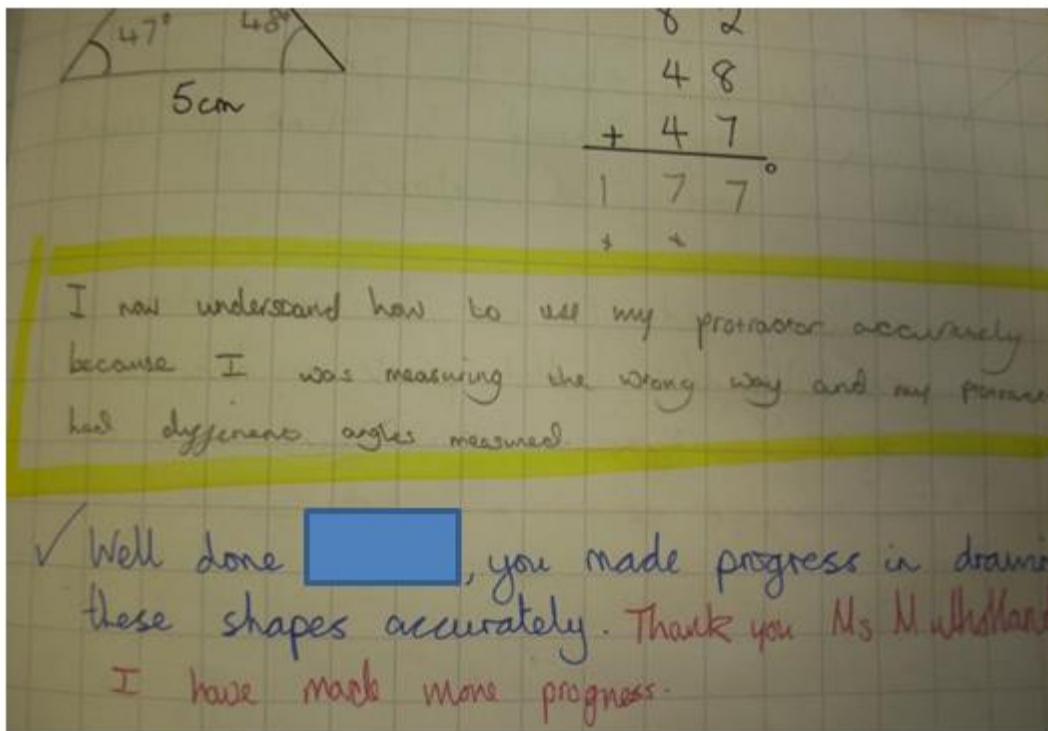 47° 48°
5cm
8 2
4 8
+ 4 7
1 7 7°
I now understand how to use my protractor accurately
because I was measuring the wrong way and my
had different angles measured
Well done , you made progress in
these shapes accurately. Thank you Ms
I have made more progress.